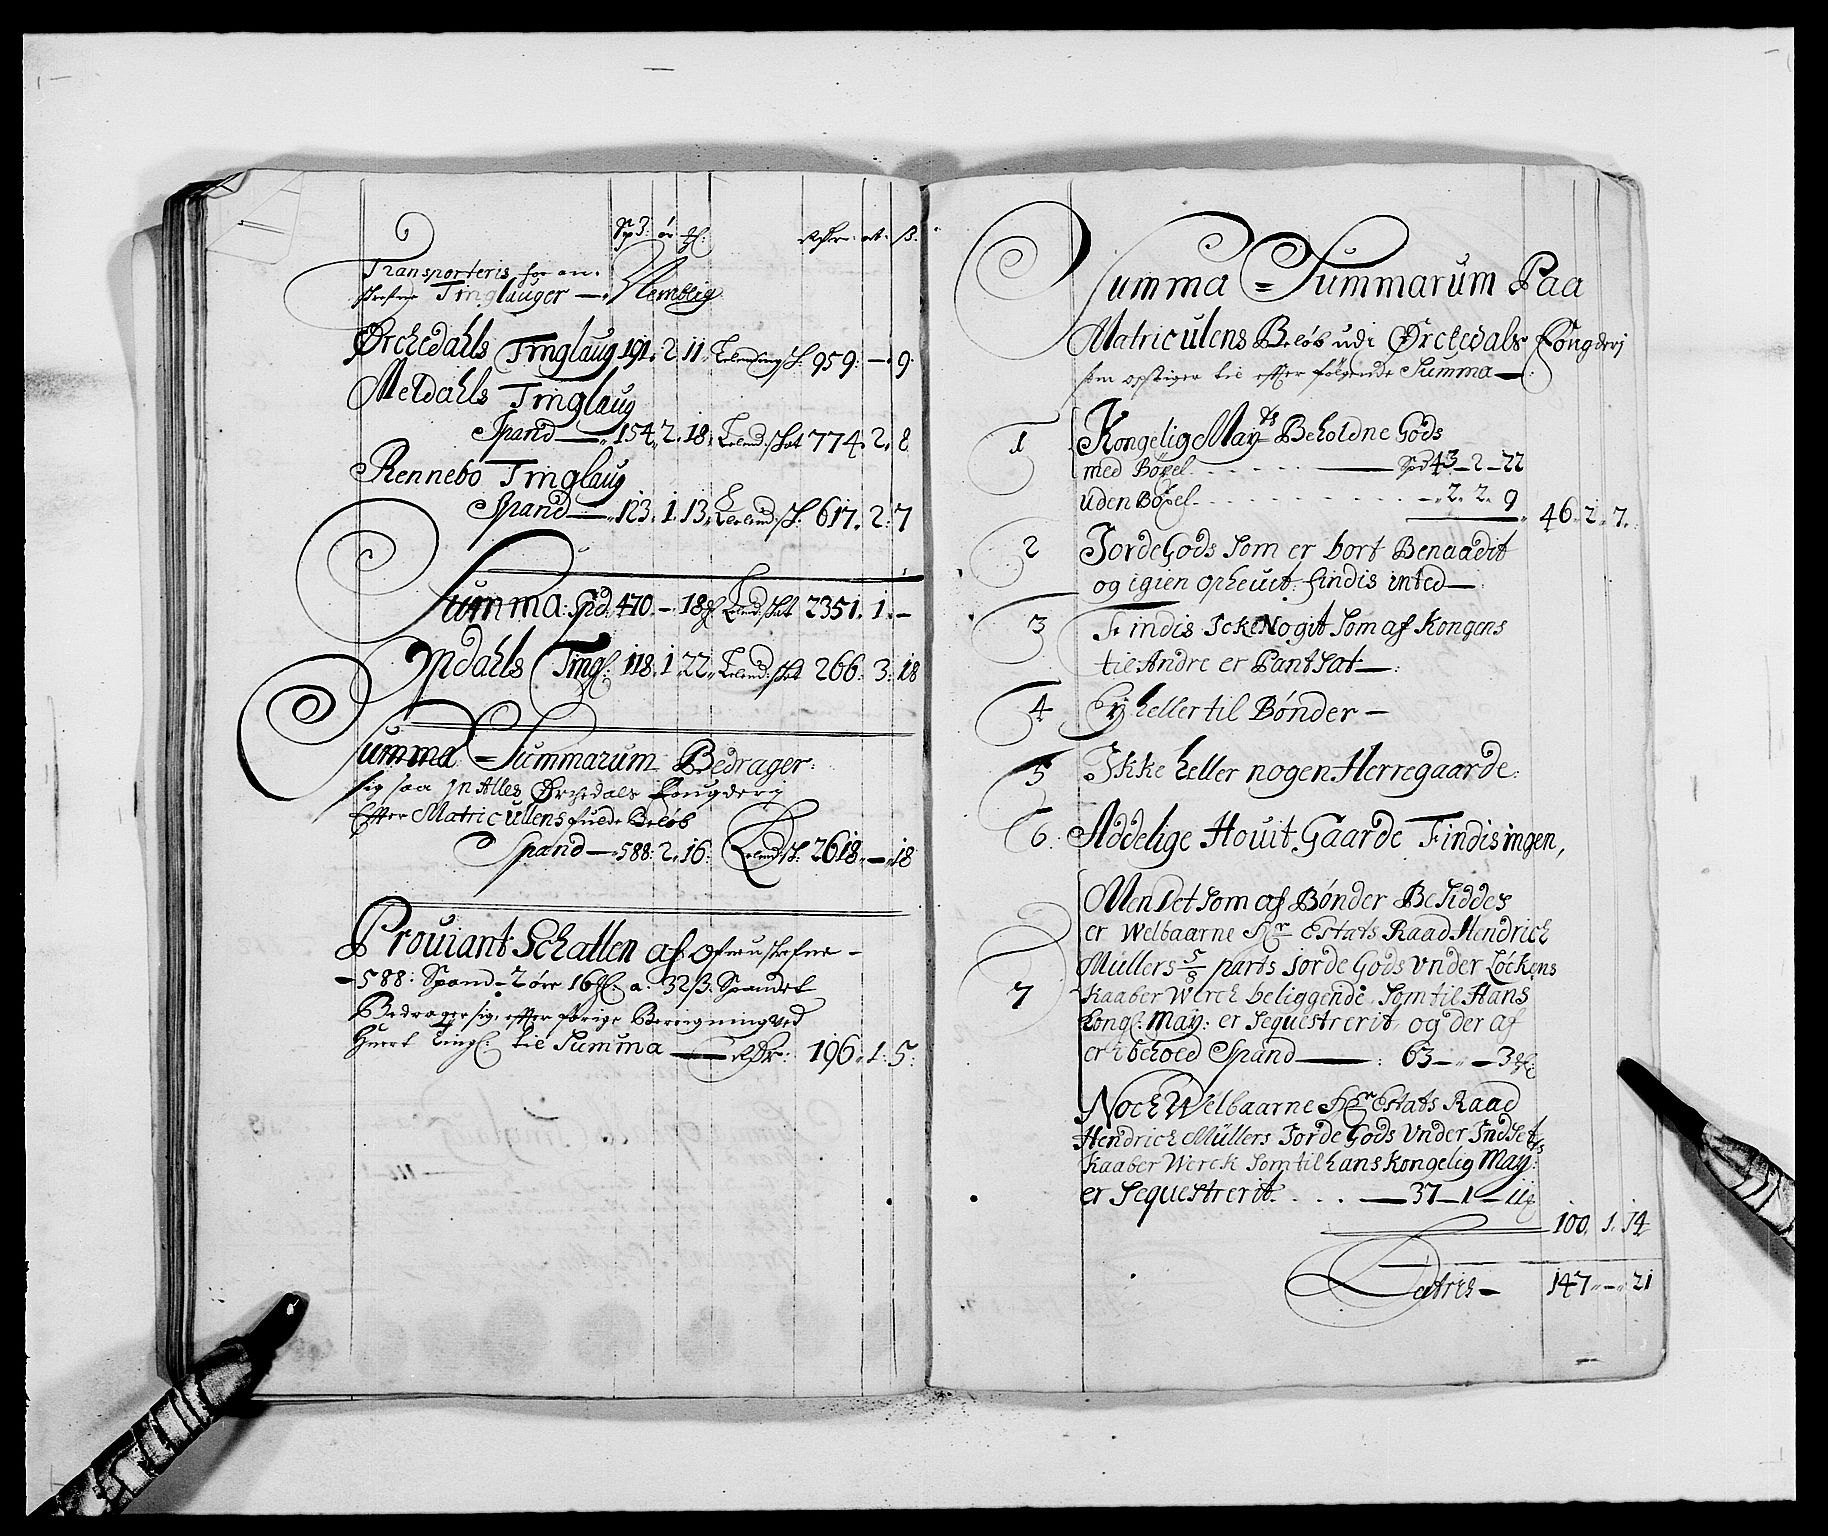 Spd: ør gl: Rdr: ort: ß.
Transporteris for an-
skrefne Tinglauger — Nemblig
Ørchedahls Tinglaug 191. 2. 11. Leilendings sk: 959: — 9.
Meldahls Tinglaug
Spand — 154. 2. 18. Leilend: skat 774. 2. 8
Rennebo Tinglaug
Spand — 123. 1. 13. Leilend: sk: 617. 2. 7
Summa: Spd. 470. — 18 gl. Leilend: skat 2351. 1. —
Opdahls Tingl: 118. 1. 22. Leilend: skat 266. 3. 18
Summa Summarum Bedrager
sig saa In Alles Ørchedals Fougderj
Effter Matriculens fulde Beløb
Spand — 588. 2. 16. Leilend: sk: 2618. — 18
Proviant Schatten af ofuenskrefne —
— 588: Spand — 2 øre 16 gl: a: 32 ß. Spandet
Bedrager sig, effter forige Bereigning ved
Huert Tingl: til Summa — Rdr: 196. 1. 5:
Summa Summarum Paa
Matriculens Beløb udi Ørckedals Fougderj
som opstiger til effter følgende Summa —:
1 Kongelig Mayts Beholdne Gods
med Böxel. — Spd 43 — 2 — 22
uden Böxel. — 2. 2. 9
46. 2. 7.
2 Jorde Gods Som er bort Benaadit
og igien opheuit. findis inted —
3 Findis Icke Nogit Som af Kongens
til Andre er Pantsat —:
4 Ej heller til Bønder —
5 Ikke heller nogen Herregaarde:
6. Addelige Houit Gaarde Findis ingen,
Men Det Som af Bønder Besiddes
er Welbaarne Hr Estats Raad Hendrich
Müllers 5/8 parts Jorde Gods Vnder Løckens
7 Kaaber Werck beliggende, Som til Hans
Kongl: May: er Sequestrerit, og der af
er i behoed Spand — : 63 — „ — 3 gl:
Noch Welbaarne Hr Estats Raad
Hendrich Müllers Jorde Gods Vnder Indsets
Kaaber Werck Som til hans Kongelig May:
er Sequestrerit. — 37 — 1 — 11 gl
100. 1. 14
Latris — 147. — 21